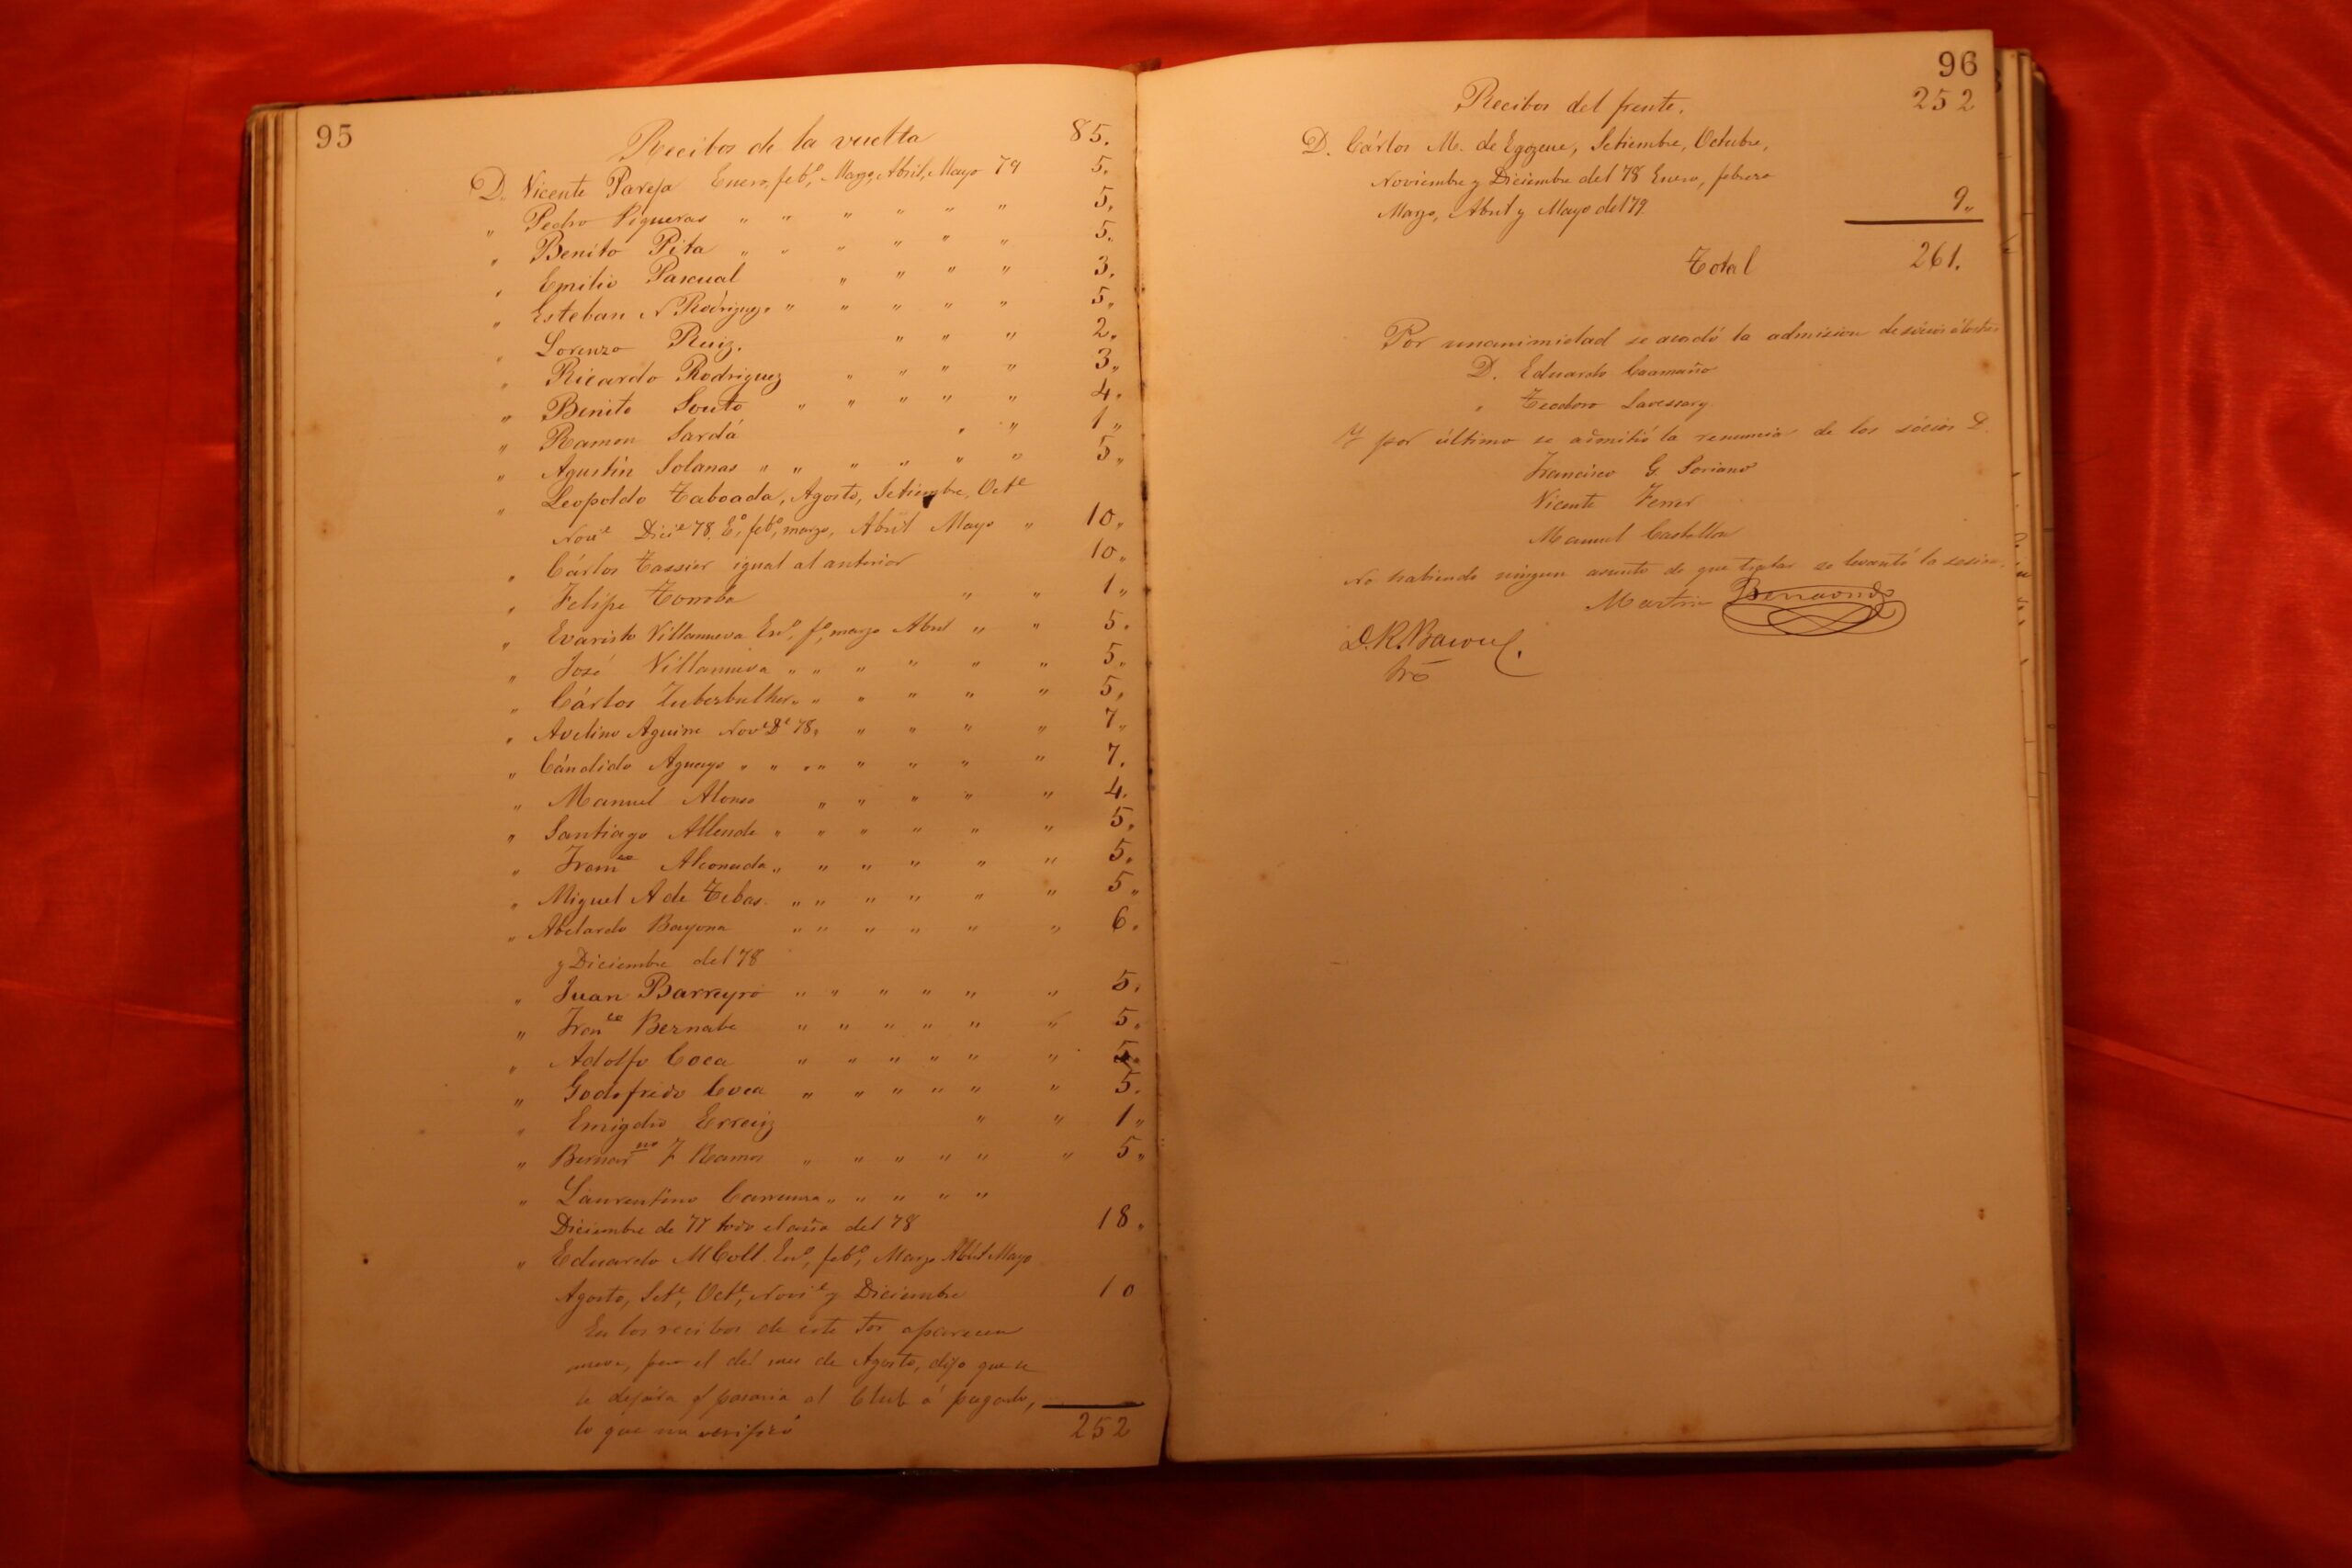 95
Recibos de la vuelta 85.
D. Vicente Pareja Enero, feb.º, Marzo, Abril, Mayo 79 5.
" Pedro Figueras " " " " " " 5.
" Benito Pita " " " " " " 5.
" Emilio Pascual " " " " 3.
" Esteban N Rodriguez " " " " " 5.
" Lorenzo Ruiz. " " " 2.
" Ricardo Rodriguez " " " " 3.
" Benito Souto " " " " " 4.
" Ramon Sardá " " 1.
" Agustin Solanas " " " " " " 5.
" Leopoldo Taboada, Agosto, Setiembre, Oct.e
Novi.e Dici.e 78. E.º, feb.º, marzo, Abril Mayo " 10.
" Cárlos Tassier igual al anterior 10.
" Felipe Tomba " " 1.
" Evaristo Villanueva En.º, f.º, marzo Abril " " 5.
" José Villanueva " " " " " " 5.
" Cárlos Zuberbulher " " " " " " 5.
" Avelino Aguirre Nov.e D.e 78. " " " " 7.
" Cándido Aguayo " " " " " " " " 7.
" Manuel Alonso " " " " " 4.
" Santiago Allende " " " " " " 5.
" Fran.co Alconada " " " " " " 5.
" Miguel A de Tebas " " " " " " 5.
" Abelardo Bayona " " " " " " 6.
y Diciembre del 78
" Juan Barreyro " " " " " " 5.
" Fran.co Bernabe " " " " " " 5.
" Adolfo Coca " " " " " " 5.
" Godofredo Coca " " " " " " 5.
" Emigdio Erreiz " " 1.
" Bernar.no F Ramos " " " " " " 5.
" Laurentino Carrema " " " " "
Diciembre de 77 todo el año del 78 18.
" Eduardo M Coll. En.º, feb.º, Marzo Abril Mayo
Agosto, Set.e, Oct.e, Novi.e y Diciembre 10
En los recibos de este Sor aparecen
nueve, pero el del mes de Agosto, dijo que se
le dejára q pasaria al Club á pagarlo,
lo que no verificó 252
96
Recibos del frente. 252
D. Cárlos M. de Egozcue, Setiembre, Octubre,
Noviembre y Diciembre del 78 Enero, febrero
Marzo, Abril y Mayo del 79. 9.
Total 261.
Por unanimidad se acodó la admision de sócios á los
D. Eduardo Caamaño
" Teodoro Lavessary
Y por último se admitió la renuncia de los sócios D.
Francisco G Soriano
Vicente Ferrer
Manuel Castellon
No habiendo ningun asunto de que tratar se levantó la sesion.
Martin
D.R.